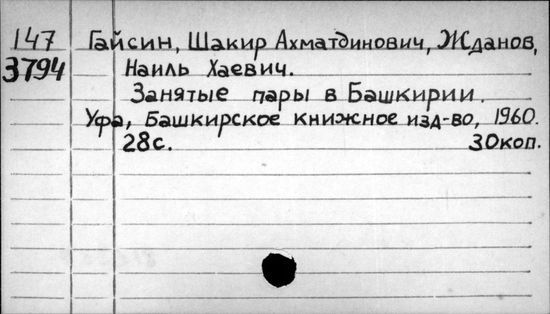 147 Гайсин, Шакир Ахматдинович, Жданов,
3794 Наиль Хаевич.
Занятые пары в Башкирии.
Уфа, Башкирское книжное изд-во, 1960.
28с. 30коп.